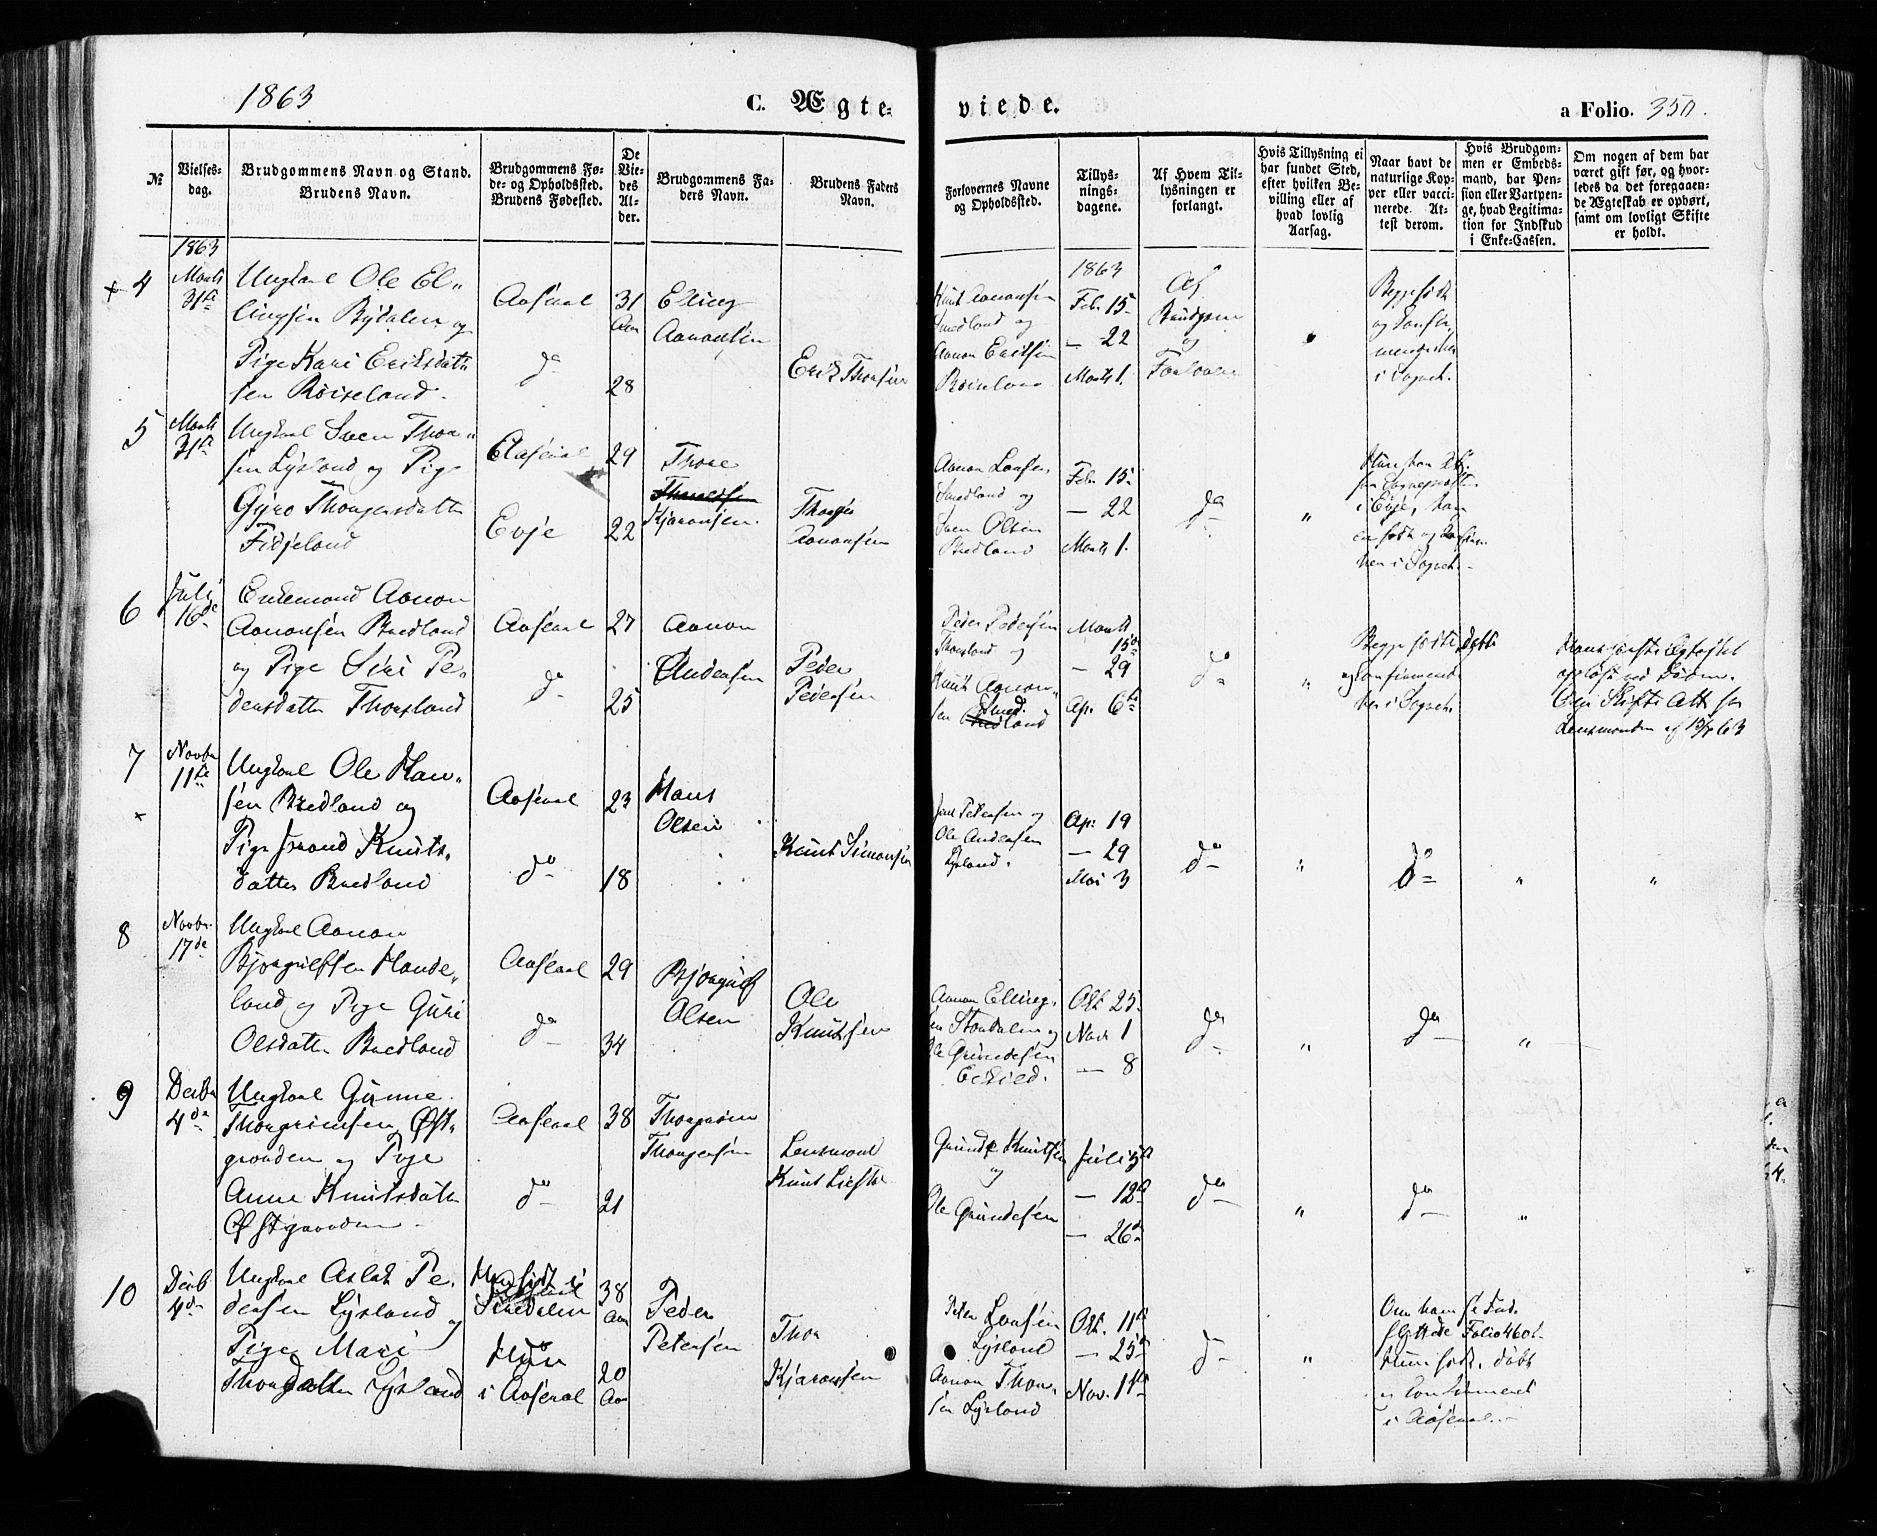 1863
C. Ægte-
viede.
a Folio. 350.
№
Vielses-
dag.
Brudgommens Navn og Stand.
Brudens Navn.
Brudgommens Fø-
de- og Opholdssted.
Brudens Fødested.
De
Vie-
des
Al-
der.
Brudgommens Fa-
ders Navn.
Brudens Faders
Navn.
Forlovernes Navne
og Opholdssted.
Tillys-
nings-
dagene.
Af Hvem Til-
lysningen er
forlangt.
Hvis Tillysning ei
har fundet Sted,
efter hvilken Be-
villing eller af
hvad lovlig
Aarsag.
Naar havt de
naturlige Kop-
per eller vacci-
nerede. At-
test derom.
Hvis Brudgom-
men er Embeds-
mand, har Pen-
sion eller Vartpen-
ge, hvad Legitima-
tion for Indskud
i Enke-Cassen.
Om nogen af dem har
været gift før, og hvor-
ledes da det foregaaen-
de Ægteskab er ophørt,
samt om lovligt Skifte
er holdt.
1863
4
Marts
31te
Ungkarl Ole El-
lingsen Bytalen og
Pige Kari Eriksdat-
ter Røiseland.
Aaseral
do
31
Aar
28
Elling
Aanonsen
Erik Thorsen
Knut Aanonsen
Smedland og
Aanon Eriksen
Røiseland
1863
Feb. 15
— 22
Marts 1.
Af
Brudgom
og
Forlover
"
Begge født
og Confir-
merede her
i Sognet.
5
Marts
31te
Ungkarl Sven Thor-
sen Lysland og Pige
Gyro Thorgersdatter
Fidjeland
Aaseral
Evje
29
22
Thore
Kjøransen.
Thorger
Aanonsen
Aanon Larsen
Smedland og
Sven Olsen
Bredland
Feb. 15
— 22
Marts 1.
do
"
i Evje, han
er født og Confir.
her i Sognet.
6
Juli
16de
Enkemand Aanon
Aanonsen Bredland
og Pige Siri Pe-
dersdatter Thorsland
Aaseral
do
27
25
Aanon
Andersen
Peder
Pedersen
Peder Pedersen
Thorsland og
Knut Aanon-
sen Smed-
land
Marts
15de
— 29
Apr. 6te
do
"
Begge født, døbt
og Confirmered
her i Sognet.
Hans første Ægteskab
opløst ved Døden.
Lensmanden af 13/7 63
7
Novbr
11te
Ungkarl Ole Han-
sen Bredland og
Pige Knuts-
datter Bredland
Aaseral
do
23
18
Hans
Olsen
Knut Simonsen
Pedersen og
Ole Andersen
Lysland.
Apr. 19
— 29
Mai 3
do
"
do
"
"
8
Novbr
17de
Ungkarl Aanon
Bjorgulfsen Haade-
land og Pige Guri
Olsdatter Bredland
Aaseral
do
29
34
Bjorgulf
Olsen
Ole
Knutsen
Aanon Elling-
sen Stordalen og
Ole Grundesen
Eikild.
Okt 25
Novr 1
— 8
do
"
do
"
9
Decbr
4de
Ungkarl Gunne
Thorgrimsen Øst-
graaden og Pige
Anne Knutsdatter
Østgraaden
Aaseral
do
38
21
Thorgrim
Thorgersen
Lensmand
Knut Liestøl
Grunde Knutsen
og
Ole Grundesen
Juli 5te
— 12te
— 26de
do
"
do
"
10
Decb
4de
Ungkarl Aslak Pe-
dersen Lysland og
Pige Mari
Thorsdatter Lysland
Han født i
Siredalen
Hun
i Aaseral
38
Aar
20
Aar
Peder
Petersen
Thor
Kjøransen
Peter Larsen
Lysland
Aanon Thor-
sen Lysland
Okt. 11te
— 25de
Nov. 1te
do
"
Om ham se Ind-
flyttede Folio 460.
Hun født, døbt
og Confirmeret
i Aaseral.